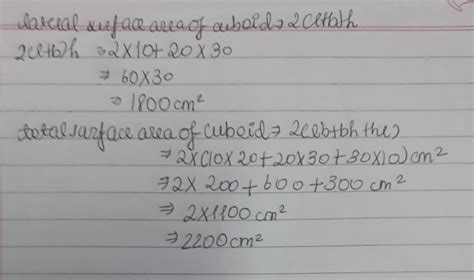 larcial surface area of cuboid ⇒ 2(l+b)h
2(l+b)h ⇒ 2×10+20×30
⇒ 60×30
⇒ 1800cm²
total surface area of cuboid ⇒ 2(lb+bh+hl)
⇒ 2×(10×20+20×30+30×10)cm²
⇒ 2×200+600+300cm²
⇒ 2×1100cm²
⇒ 2200cm²